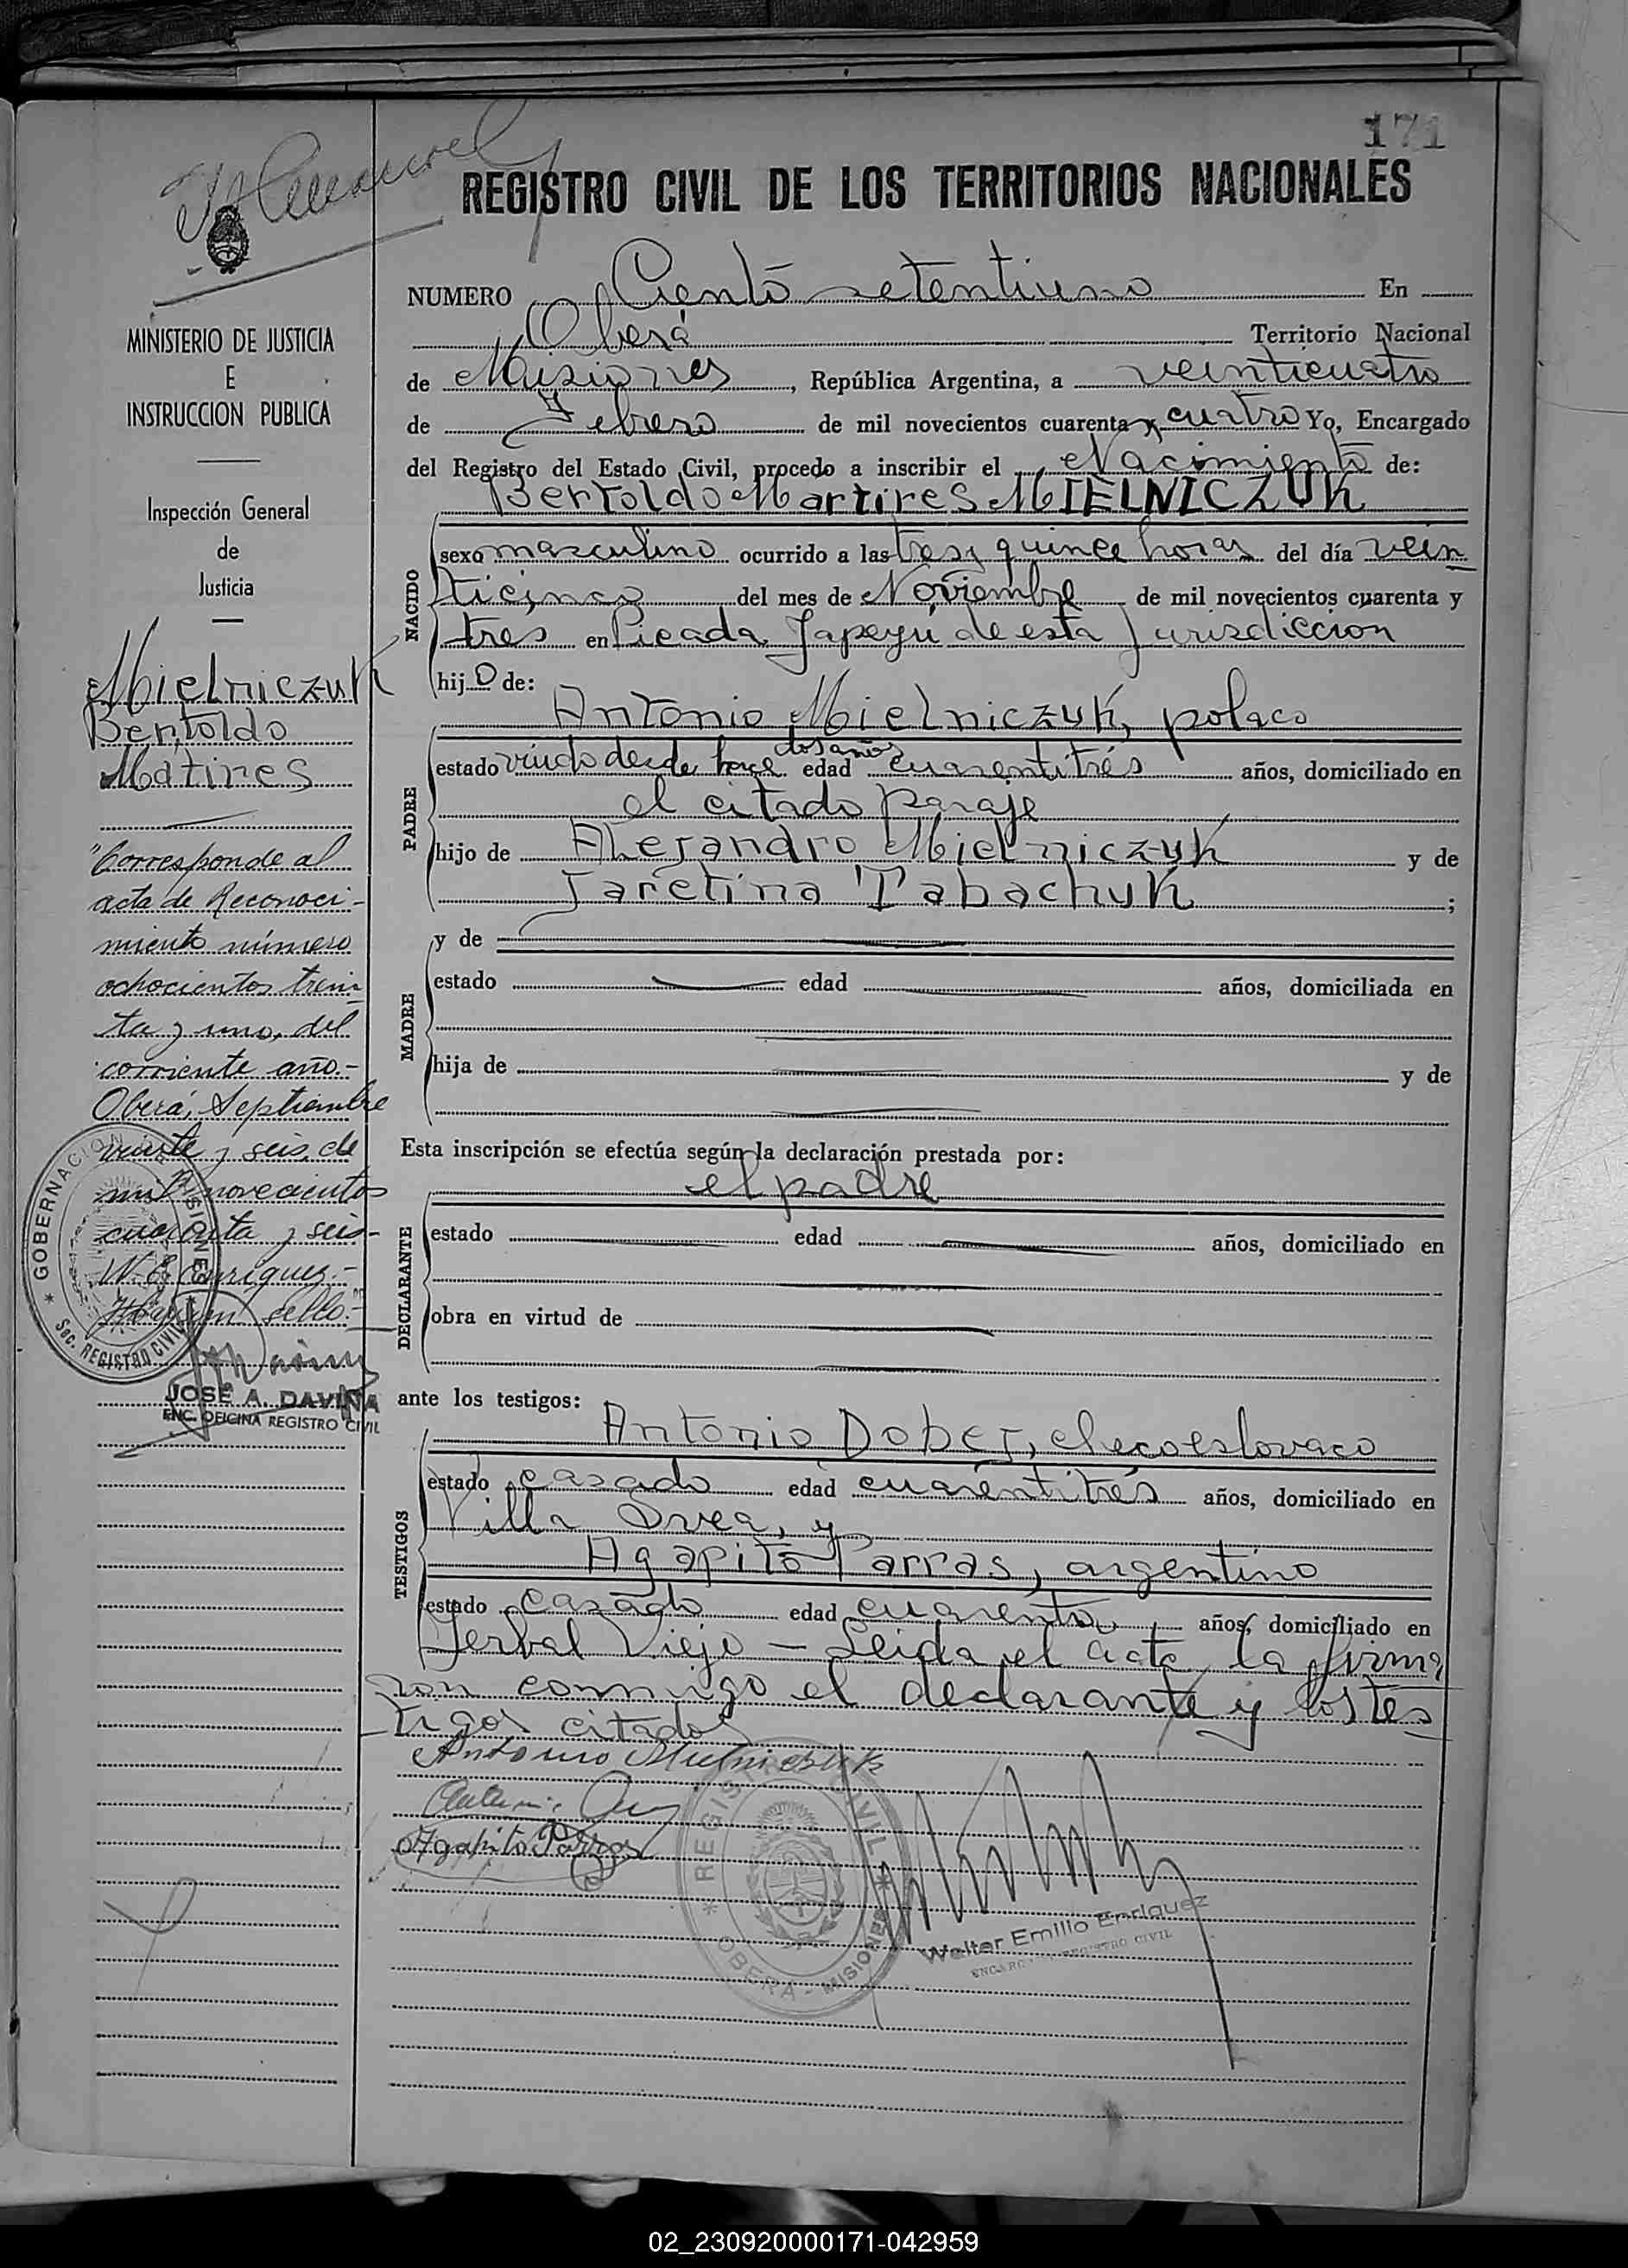 171
REGISTRO CIVIL DE LOS TERRITORIOS NACIONALES
NUMERO Ciento setentiuno En
Oberá Territorio Nacional
de Misiones, República Argentina, a veinticuatro
de Febrero de mil novecientos cuarenta y cuatro Yo, Encargado
del Registro del Estado Civil, procedo a inscribir el Nacimiento de:
Bertoldo Martires MIELNICZUK
NACIDO
sexo masculino ocurrido a las tres y quince horas del día vein
ticinco del mes de Noviembre de mil novecientos cuarenta y
tres en Picada Yapeyú de esta Jurisdiccion
hijo de:
PADRE
Antonio Mielniczuk, polaco
estado viudo desde hace dos años edad cuarentitrés años, domiciliado en
el citado paraje
hijo de Alejandro Mielniczuk y de
Jaretina Tabachuk;
MADRE
y de
estado edad años, domiciliada en
hija de y de
Esta inscripción se efectúa según la declaración prestada por:
DECLARANTE
el padre
estado edad años, domiciliado en
obra en virtud de
ante los testigos:
TESTIGOS
Antonio Dobej, checoeslovaco
estado casado edad cuarentitrés años, domiciliado en
Villa Svea, y
Agapito Parras, argentino
estado casado edad cuarenta años, domiciliado en
Yerbal Viejo - Leida el acta, la firma
ron conmigo el declarante y los tes
tigos citados
Antonio Mielniczuk
Antonio
Agapito Parras
REGISTRO CIVIL
OBERA - MISIONES
Walter Emilio Enriquez
ENCARGADO REGISTRO CIVIL
MINISTERIO DE JUSTICIA
E
INSTRUCCION PUBLICA
Inspección General
de
Justicia
Mielniczuk
Bertoldo
Matires
"Corresponde al
acta de Reconoci-
miento número
ochocientos trein
ta y uno, del
corriente año.-
Oberá, Septiembre
veinte y seis de
mil novecientos
cuarenta y seis-
W. E. Enriquez.-
Hay un sello.-
GOBERNACION MISIONES
Sec. REGISTRO CIVIL
JOSÉ A. DAVIÑA
ENC. OFICINA REGISTRO CIVIL
02_230920000171-042959